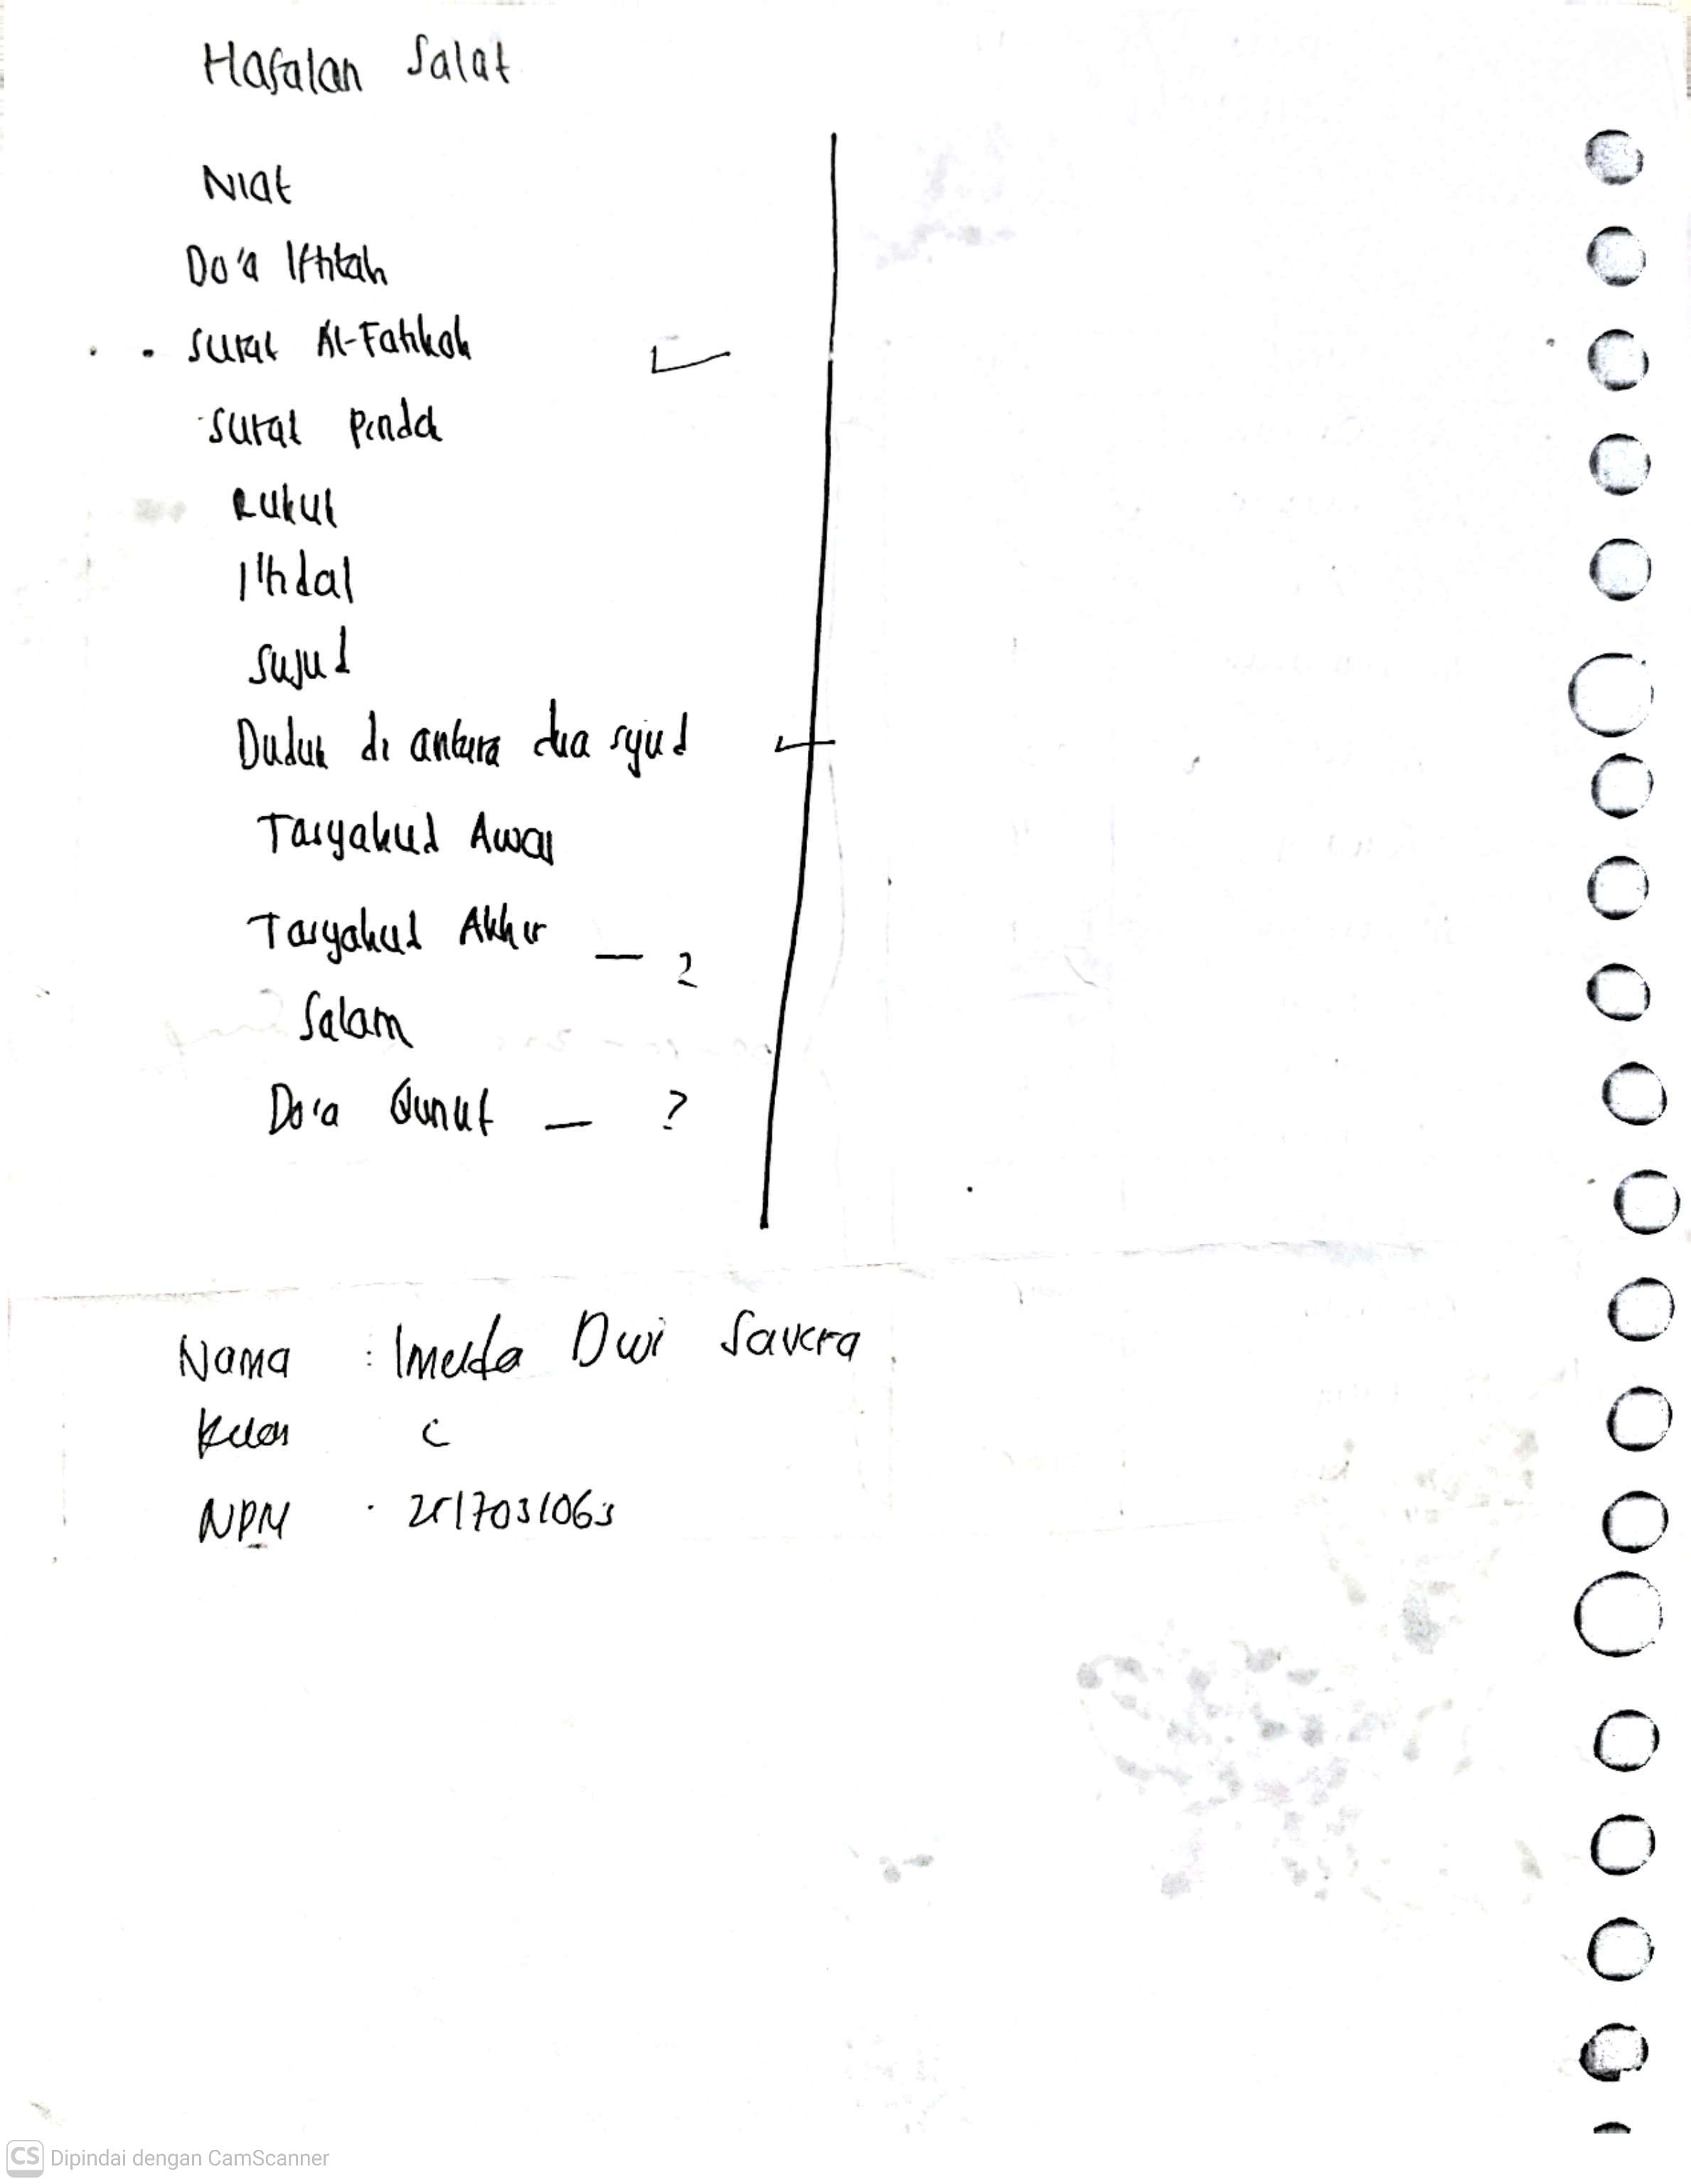 Hafalan Salat
Niat
Do'a Iftitah
Surat Al-Fatihkah
Surat Pendek
Rukuk
I'tidal
Sujud
Duduk di antara dua syud
Tasyahud Awal
Tasyahud Akhir — 2
Salam
Do'a Qunut — ?
Nama : Imelda Dwi Savera
Kelas C
NPM
CS Dipindai dengan CamScanner